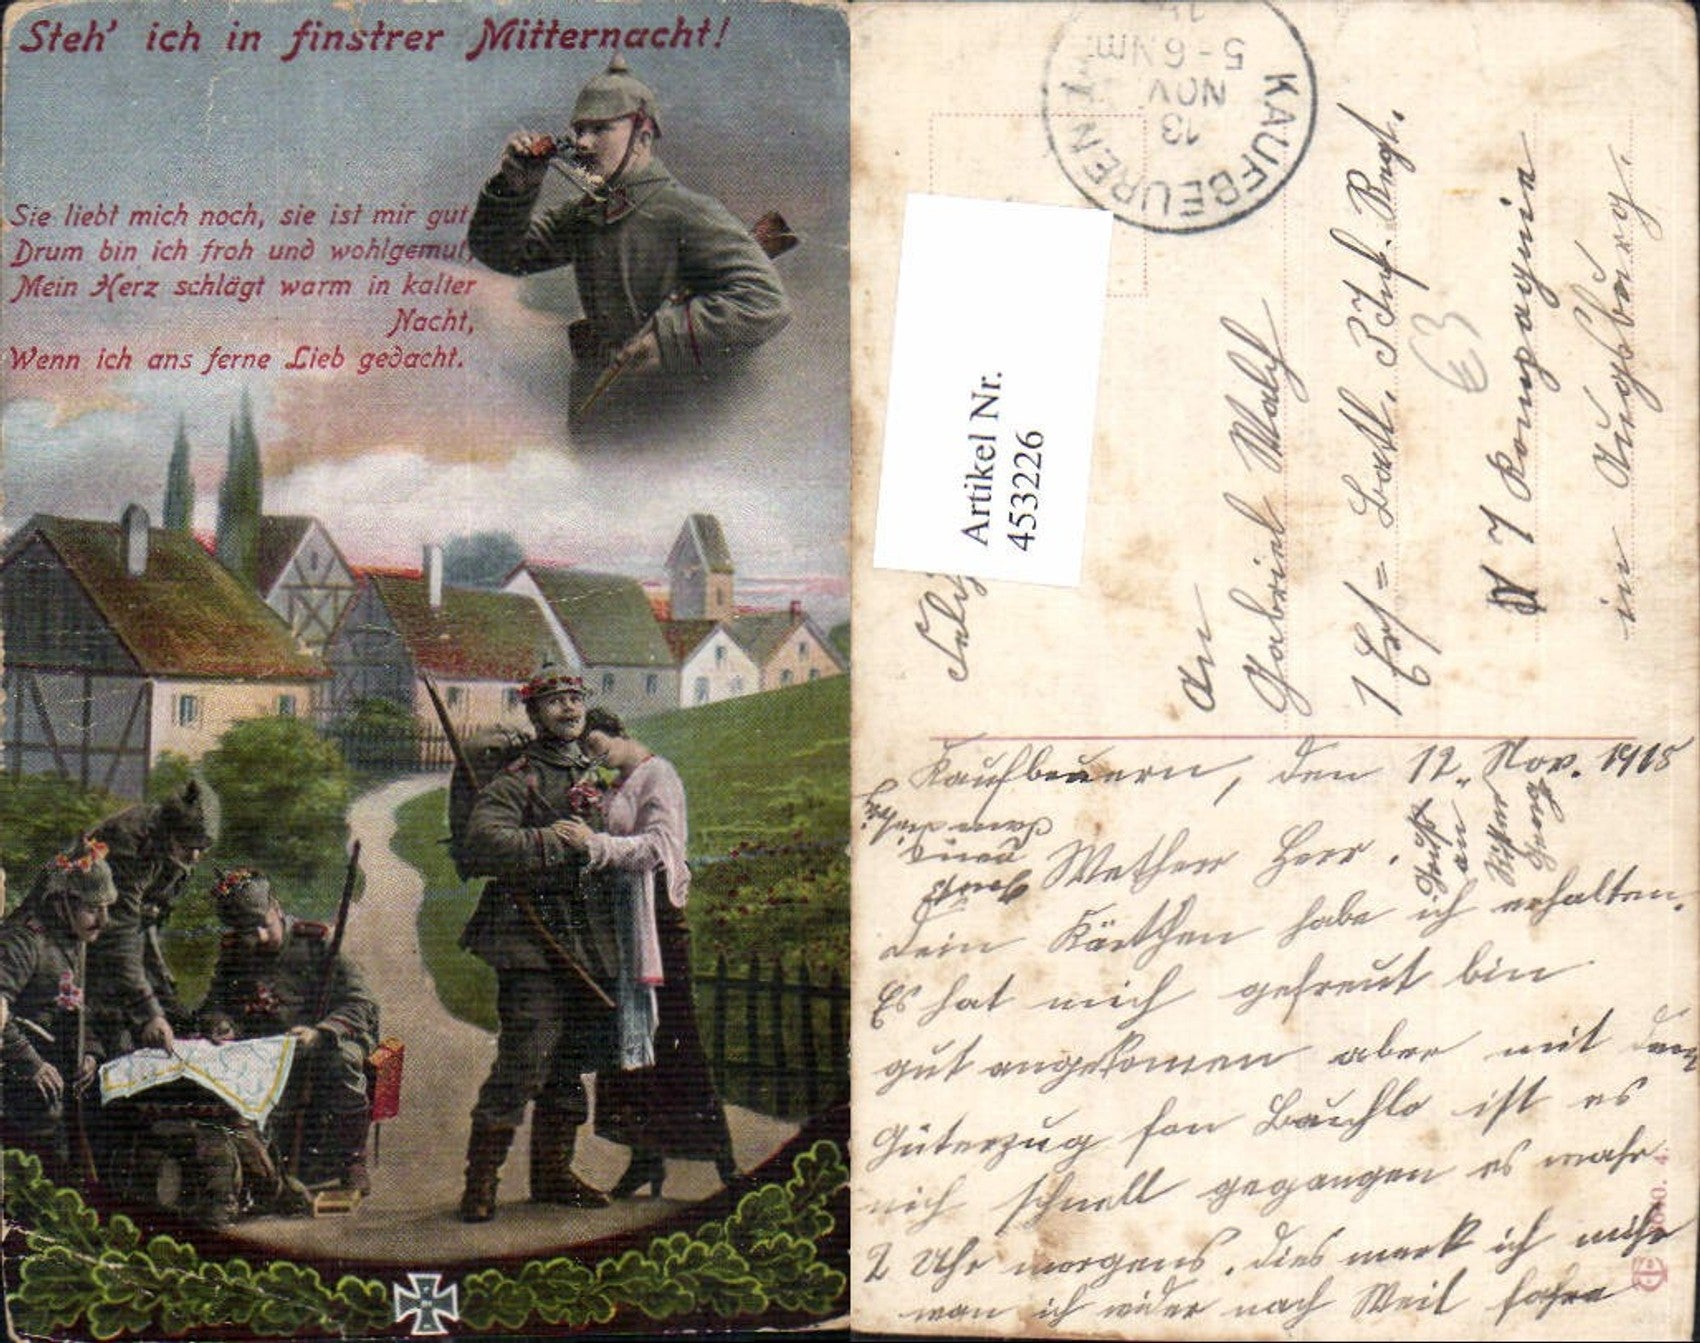 Steh' ich in finstrer Mitternacht!
Sie liebt mich noch, sie ist mir gut
Drum bin ich froh und wohlgemut,
Mein Herz schlägt warm in kalter
Nacht,
Wenn ich ans ferne Lieb gedacht.
KAUFBEUREN
13
NOV
5-6 Nm.
Artikel Nr.
453226
An
Gabriel
1 Ers= Batl. 3 Inf. Regt.
7 Kompagnie
in Augsburg.
Kaufbeuern, den 12. Nov. 1915
Werther Herr.
Gruß
an
Georg
Dein Kärtchen habe ich erhalten.
Es hat mich gefreut bin
gut angekomen aber mit dem
Güterzug fon Buchlo ist es
nich schnell gegangen es wahr
2 Uhr morgens. dies merk ich mihr
wan ich wider nach Weil fahre